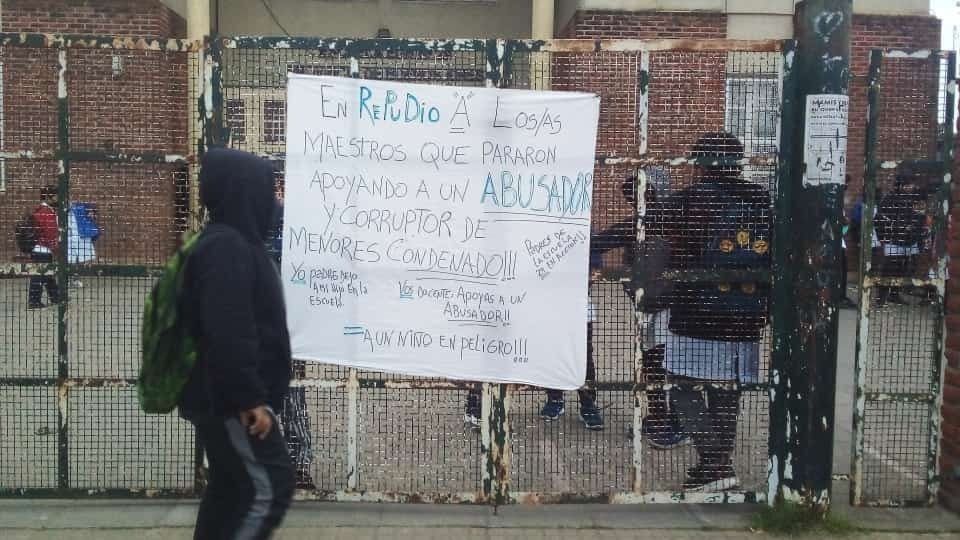 EN REPUDIO "A" LOS/AS
MAESTROS QUE PARARON
APOYANDO A UN ABUSADOR
Y CORRUPTOR DE
MENORES CONDENADO!!!
PADRES DE
LA ESCUELA
EN ACCIÓN!!
YO PADRE DEJO
A MI HIJO EN LA
ESCUELA
VOS DOCENTE, APOYAS A UN
ABUSADOR!!
= A UN NIÑO EN PELIGRO!!!
MAMIS TE